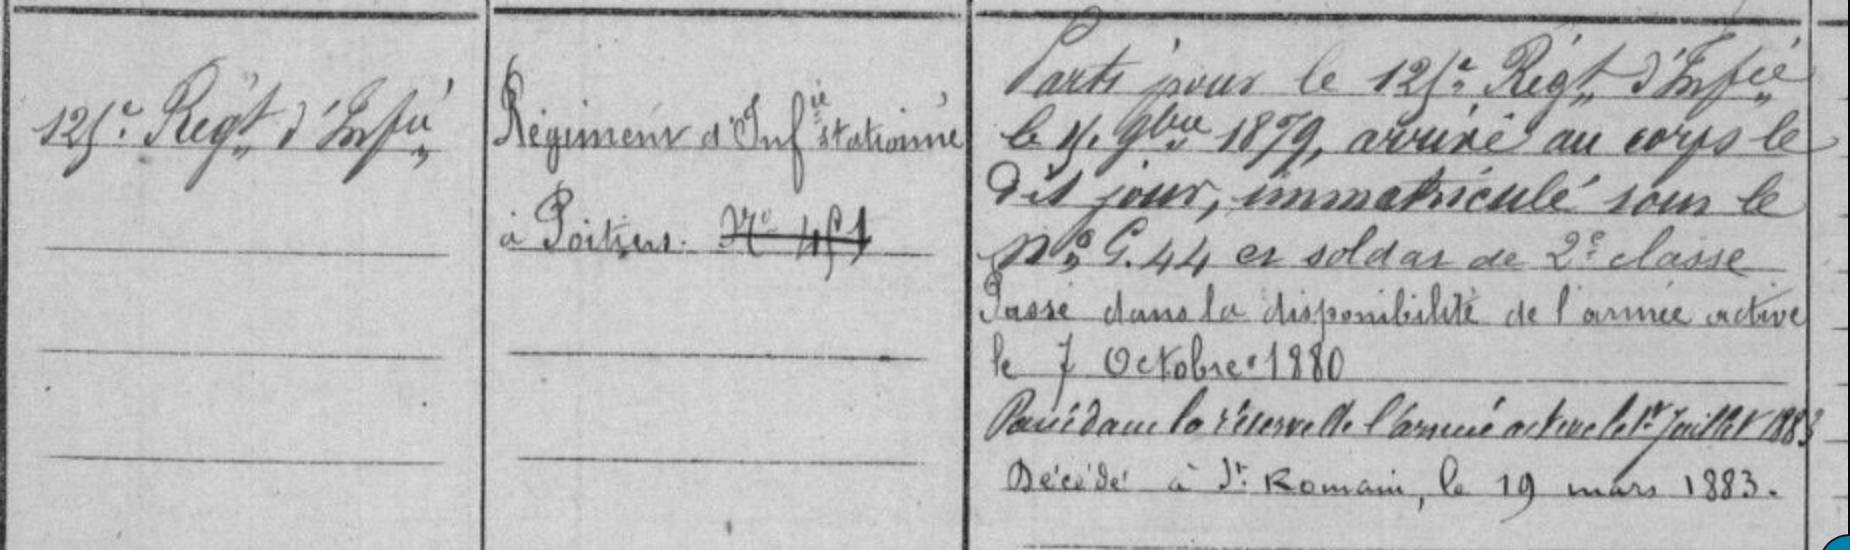 125e Régt d'Infie
Régiment d'Infie stationné
à Poitiers. No 451
Parti pour le 125e Régt d'Infie
le 9bre 1879, arrivé au corps le
dit jour, immatriculé sous le
No G.44 et soldat de 2e classe
Passé dans la disponibilité de l'armée active
le 7 Octobre 1880
Passé dans la réserve de l'armée active le 1er Juillet 1883
Décédé à St Romain, le 19 mars 1883.